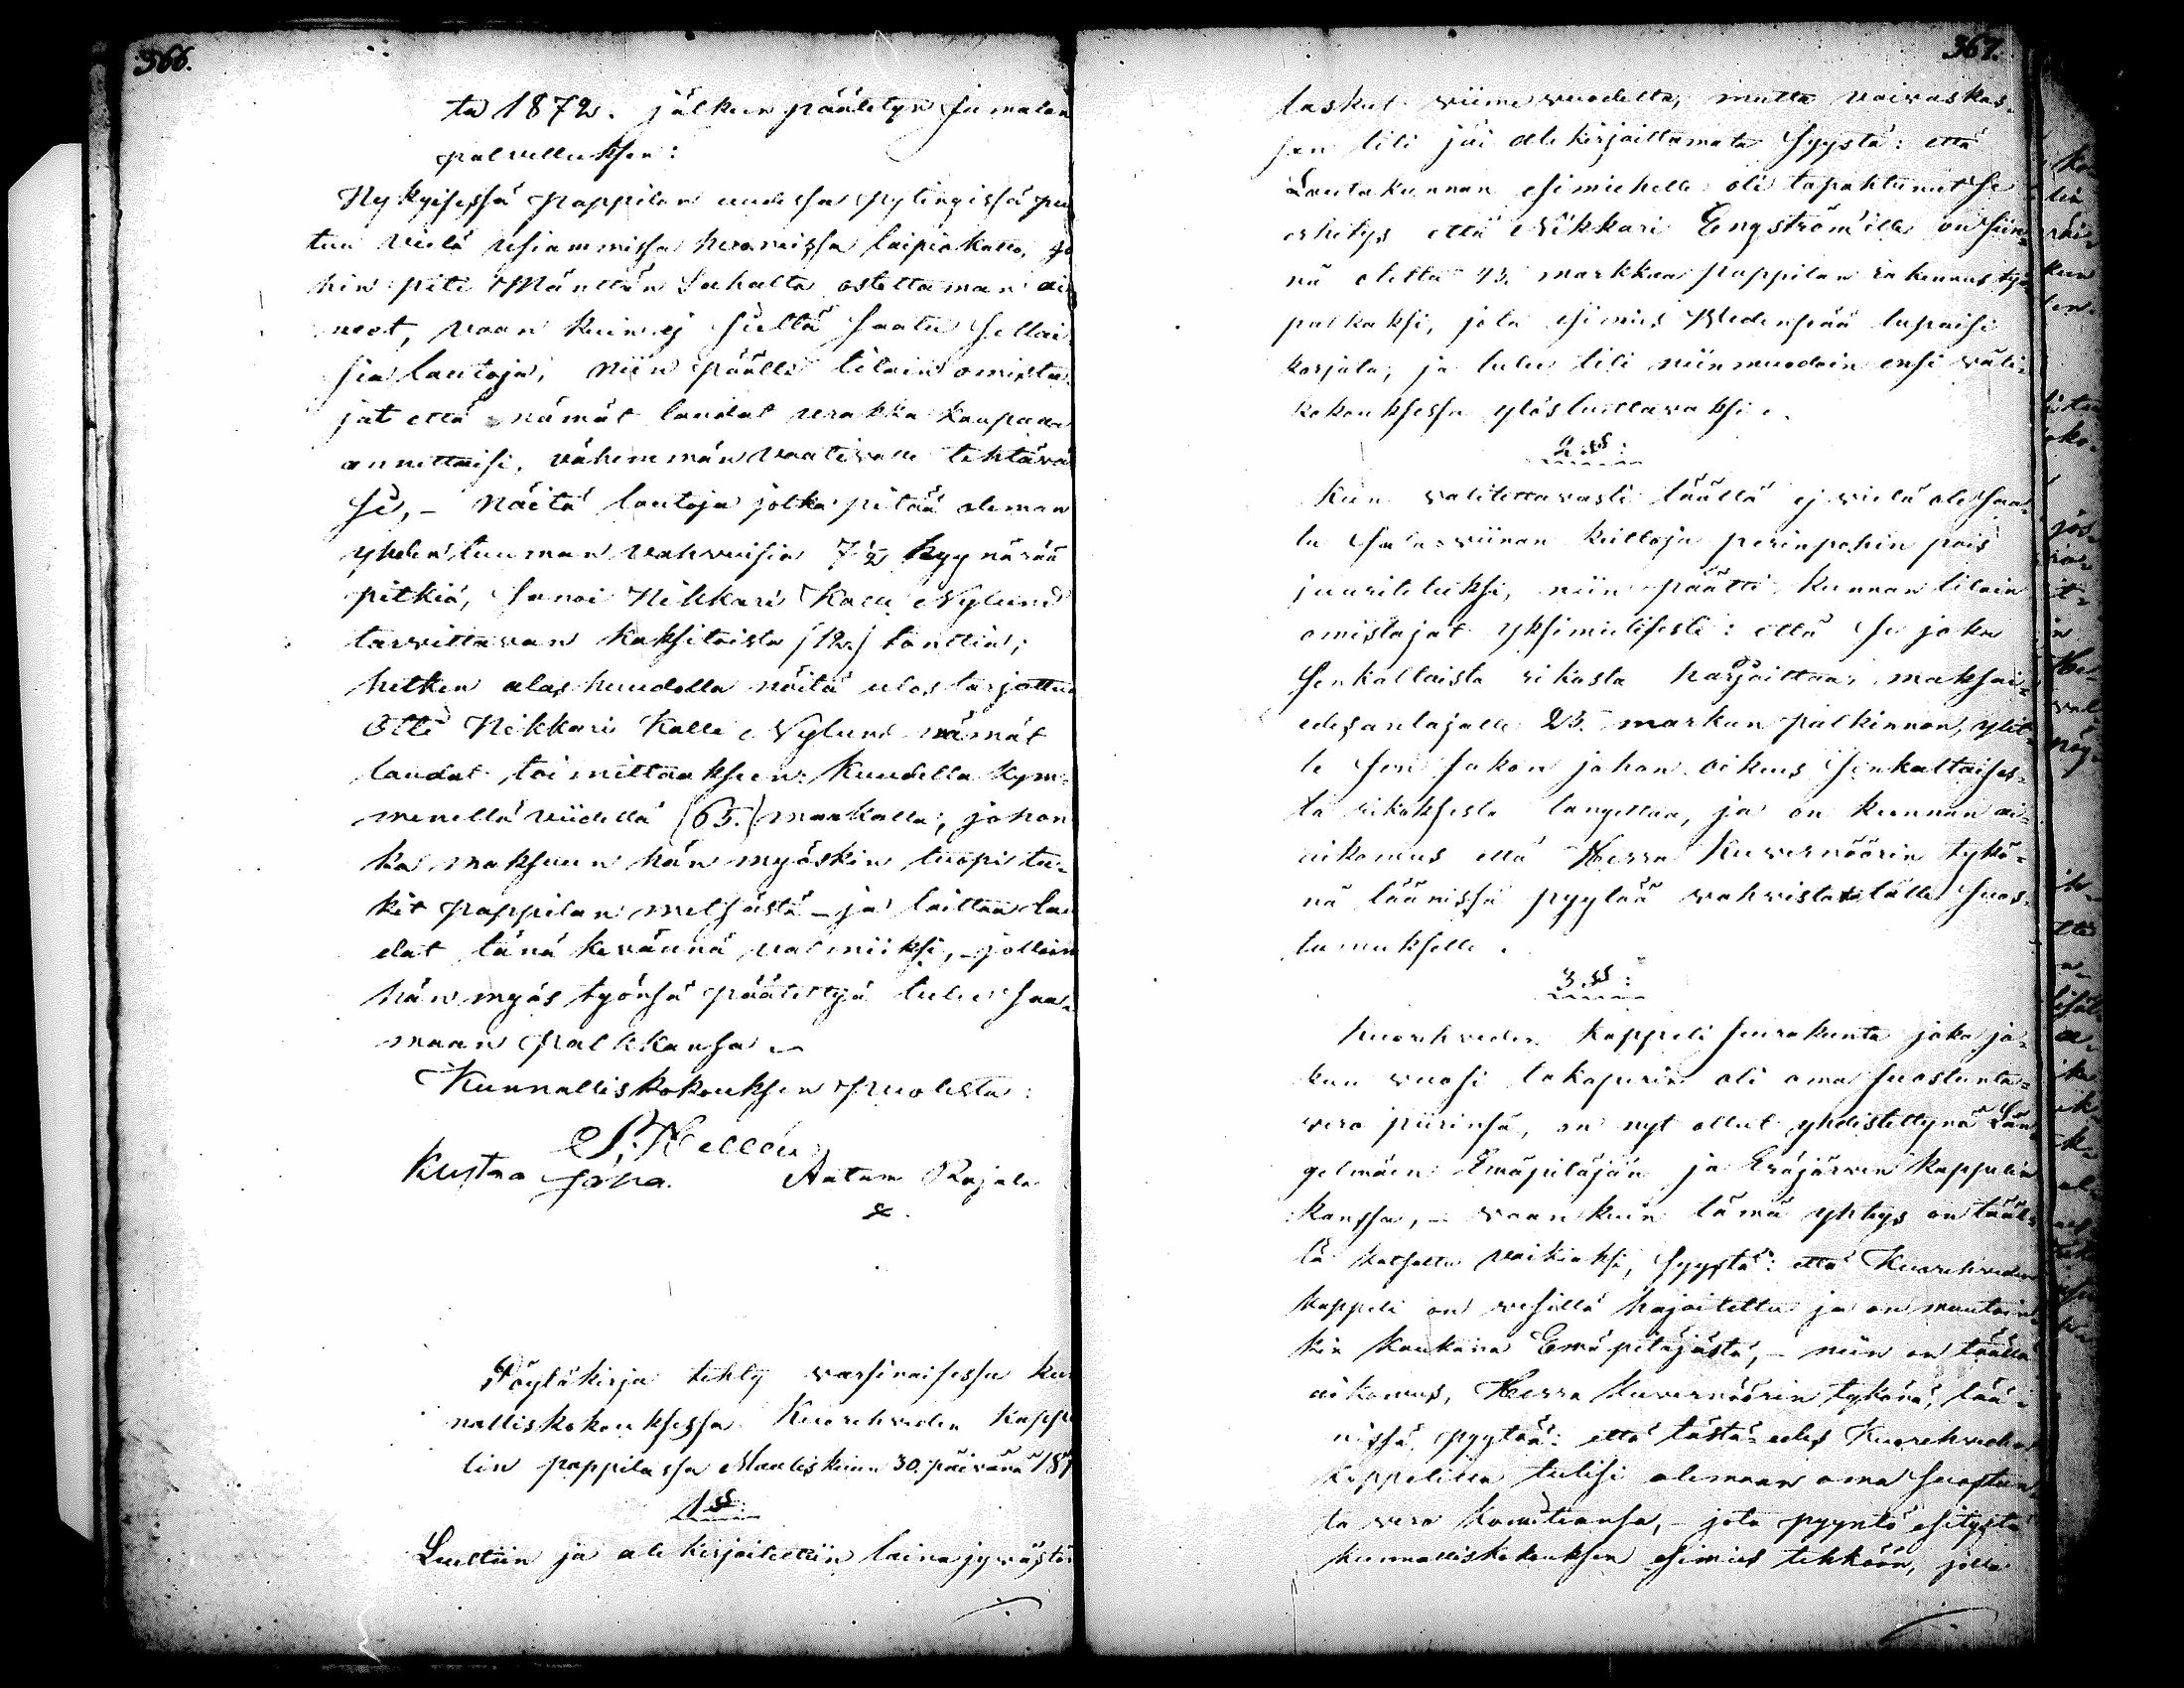 366.
ta 1872. jälkeen päätetyn Jumalan
palvelluksen:
Nykyisessä pappilan uudessa pytingissä puu
tuu vielä usiammissa huoneissa laipiokatto, jo
hin piti Mänttän Sahalta ostettaman ai
neet, vaan kuin ej sieltä saatu sellai
sia lautoja, niin päätti tilain omista
jat että nämät laudat urakka kaupaan
annettaisi, vähemmän vaativalle tehtävä
si, – Näitä lautoja jotka pitää oleman
yhden tuuman vahvuisia 7½ kyynärää
pitkiä, sanoi Nikkari Kalle Nylund
tarvittavan kaksitoista (12.) tolttia;
hetken alas huudolla näitä ulos tarjottua
Otti Nikkari Kalle Nylund nämät
laudat toimittaaksen kuudella kym-
menellä viidellä (65.) markalla, johon
ka maksuun hän myöskin tuopi tu-
kit pappilan metsästä – ja laittaa lau
dat tänä kevännä valmiiksi, – jolloin
hän myös työnsä päätettyä tulee saa-
maan palkkansa.
Kunnalliskokouksen puolesta:
S. Hellén
Kustaa Aatam Rajala
Pöytäkirja tehty varsinaisessa kun
nalliskokouksessa Kuorehveden kappe
lin pappilassa Maaliskuun 30. päivänä 187
1 §:
Luettiin ja ale kirjoitettiin lainajyvästö
367.
laskut viime vuodelta, mutta vaivaskas-
san tili jäi allekirjoittamata syystä: että
Lautakunnan esimiehelle oli tapahtunut se
erhetys että Nikkari Engström'ille on siin-
nä otettu 43. markkaa pappilan rakennus työ-
palkaksi, jota esimies Wedenpää lupaisi
korjata, ja tulee tili niinmuodoin ensi väli-
kokouksessa ylösluettavaksi.
2 §:
Kun valitettavasti täällä ej vielä ole saa-
tu Sala-viinan keittoja perinpohin pois
juurituksi, niin päätti kunnan tilain
omistajat yksimielisesti: että se joka
senkaltaista rikosta harjoittaa, maksai-
edesantajalle 25. markan palkinnon, ylit-
te sen sakon johon oikeus senkaltaises-
ta rikoksesta langettaa, ja on kunnan ai-
aikomus että Herra Kuvernöörin tykö-
nä läänissä pyytää vahvistusta tälle suos-
tumukselle.
3 §:
Kuorehveden Kappeli seurakunta joka jo-
kun vuosi takaperin oli oma suostunta-
vero piirinsä, on nyt ollut yhdistettynä Län-
gelmäen Emäpitäjän ja Eräjärven kappelin
kanssa, – vaan kuin tämä yhtys on tääl-
lä katsottu vaikiaksi, syystä: että Kuorehveden
kappeli on vesillä hajoitettu ja on muutoin-
kin kaukana Emäpitäjästä, – niin on täällä
aikomus, Herra Kuvernöörin tykönä, lää-
nissä pyytää: että tästä-edes Kuorehveden
kappelilla tulisi olemaan oma suostun-
ta vero komiteansa, – jota pyyntö esitystä
kunnalliskokouksen esimies tehköön, jolla